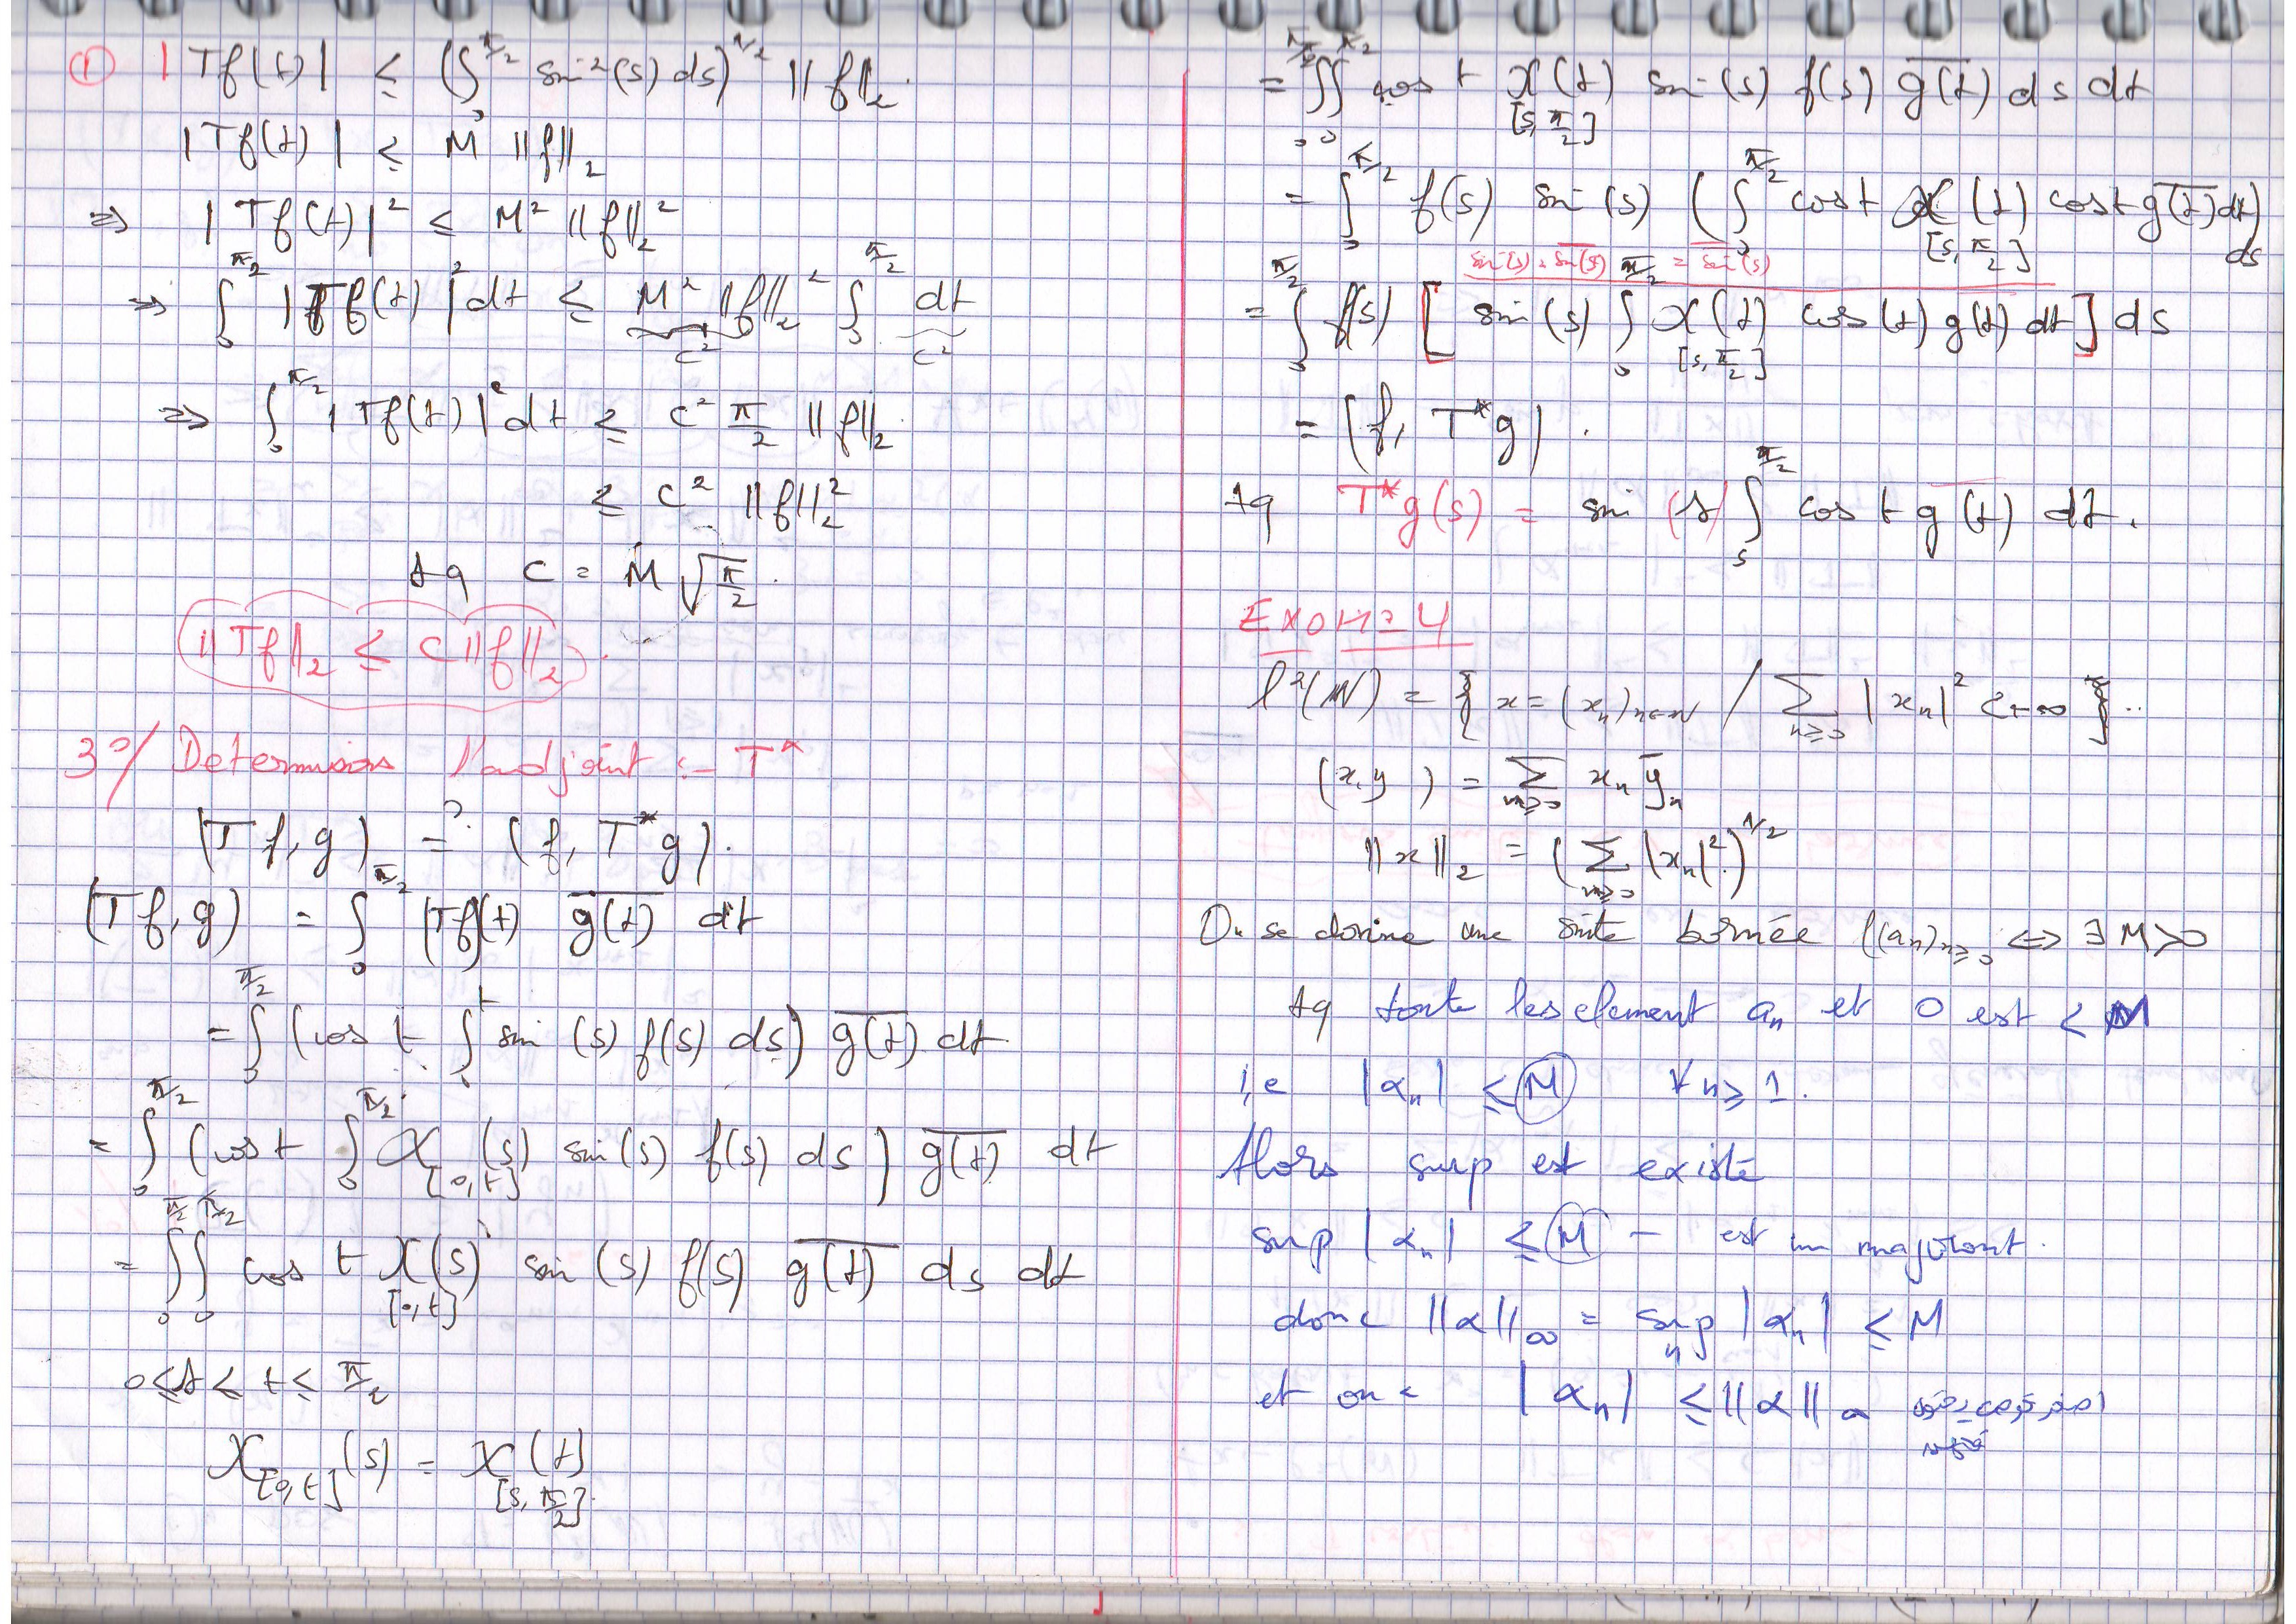 ① |Tf(t)| ≤ (∫₀^{π/2} sin²(s) ds)^{1/2} ‖f‖₂.
|Tf(t)| ≤ M ‖f‖₂
⇒ |Tf(t)|² ≤ M² ‖f‖₂²
⇒ ∫₀^{π/2} |Tf(t)|² dt ≤ M² ‖f‖₂² ∫₀^{π/2} dt
c² c²
⇒ ∫₀^{π/2} |Tf(t)|² dt ≤ c² π/2 ‖f‖₂.
≤ c² ‖f‖₂²
tq c = M √(π/2).
‖Tf‖₂ ≤ c‖f‖₂.
3°/ Determinions l'adjoint :- T*
(Tf, g) =? (f, T*g).
(Tf, g) = ∫₀^{π/2} (Tf)(t) \overline{g(t)} dt
= ∫₀^{π/2} (cos t ∫₀^t sin(s) f(s) ds) \overline{g(t)} dt
= ∫₀^{π/2} (cos t ∫₀^{π/2} χ_{[0,t]}(s) sin(s) f(s) ds) \overline{g(t)} dt
= ∫₀^{π/2} ∫₀^{π/2} cos t χ_{[0,t]}(s) sin(s) f(s) \overline{g(t)} ds dt
0 ≤ s ≤ t ≤ π/2
χ_{[0,t]}(s) = χ_{[s,π/2]}(t)
= ∫₀^{π/2} ∫₀^{π/2} cos t χ_{[s,π/2]}(t) sin(s) f(s) \overline{g(t)} ds dt
= ∫₀^{π/2} f(s) sin(s) (∫₀^{π/2} cos t χ_{[s,π/2]}(t) cos t \overline{g(t)} dt) ds
sin(s) = \overline{sin(s)} = \overline{sin(s)}
= ∫₀^{π/2} f(s) [\overline{sin(s) ∫₀^{π/2} χ_{[s,π/2]}(t) cos(t) g(t) dt}] ds
= (f, T*g).
tq T*g(s) = sin(s) ∫_s^{π/2} cos t \overline{g(t)} dt.
Exo N=4
l²(ℕ) = { x = (xₙ)_{n∈ℕ} / Σ_{n≥0} |xₙ|² < +∞ }..
(x,y) = Σ_{n≥0} xₙ ȳₙ
‖x‖₂ = (Σ_{n≥0} |xₙ|²)^{1/2}
On se donne une suite bornée ((aₙ)_{n≥0} ⇔ ∃ M>0
tq toute les element aₙ et 0 est < M
i,e |αₙ| ≤ M ∀ n ≥ 1.
Alors sup est existe
sup |αₙ| ≤ M - est un majorant.
donc ‖α‖∞ = sup_n |αₙ| ≤ M
et on < |αₙ| ≤ ‖α‖∞